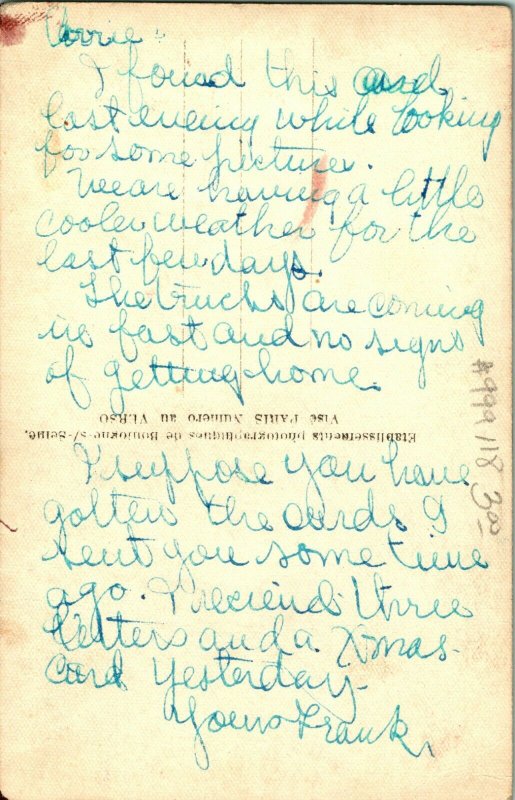 I found this card
last evening while looking
for some picture.
We are having a little
cooler weather for the
last few days.
The trucks are coming
in fast and no signs
of getting home.
Etablissements photographiques de Boulogne-s/-Seine.
Visé PARIS Numéro au VERSO
I suppose you have
gotten the cards I
sent you some time
ago. I reciend three
letters and a Xmas-
card yesterday-
Yours Frank,